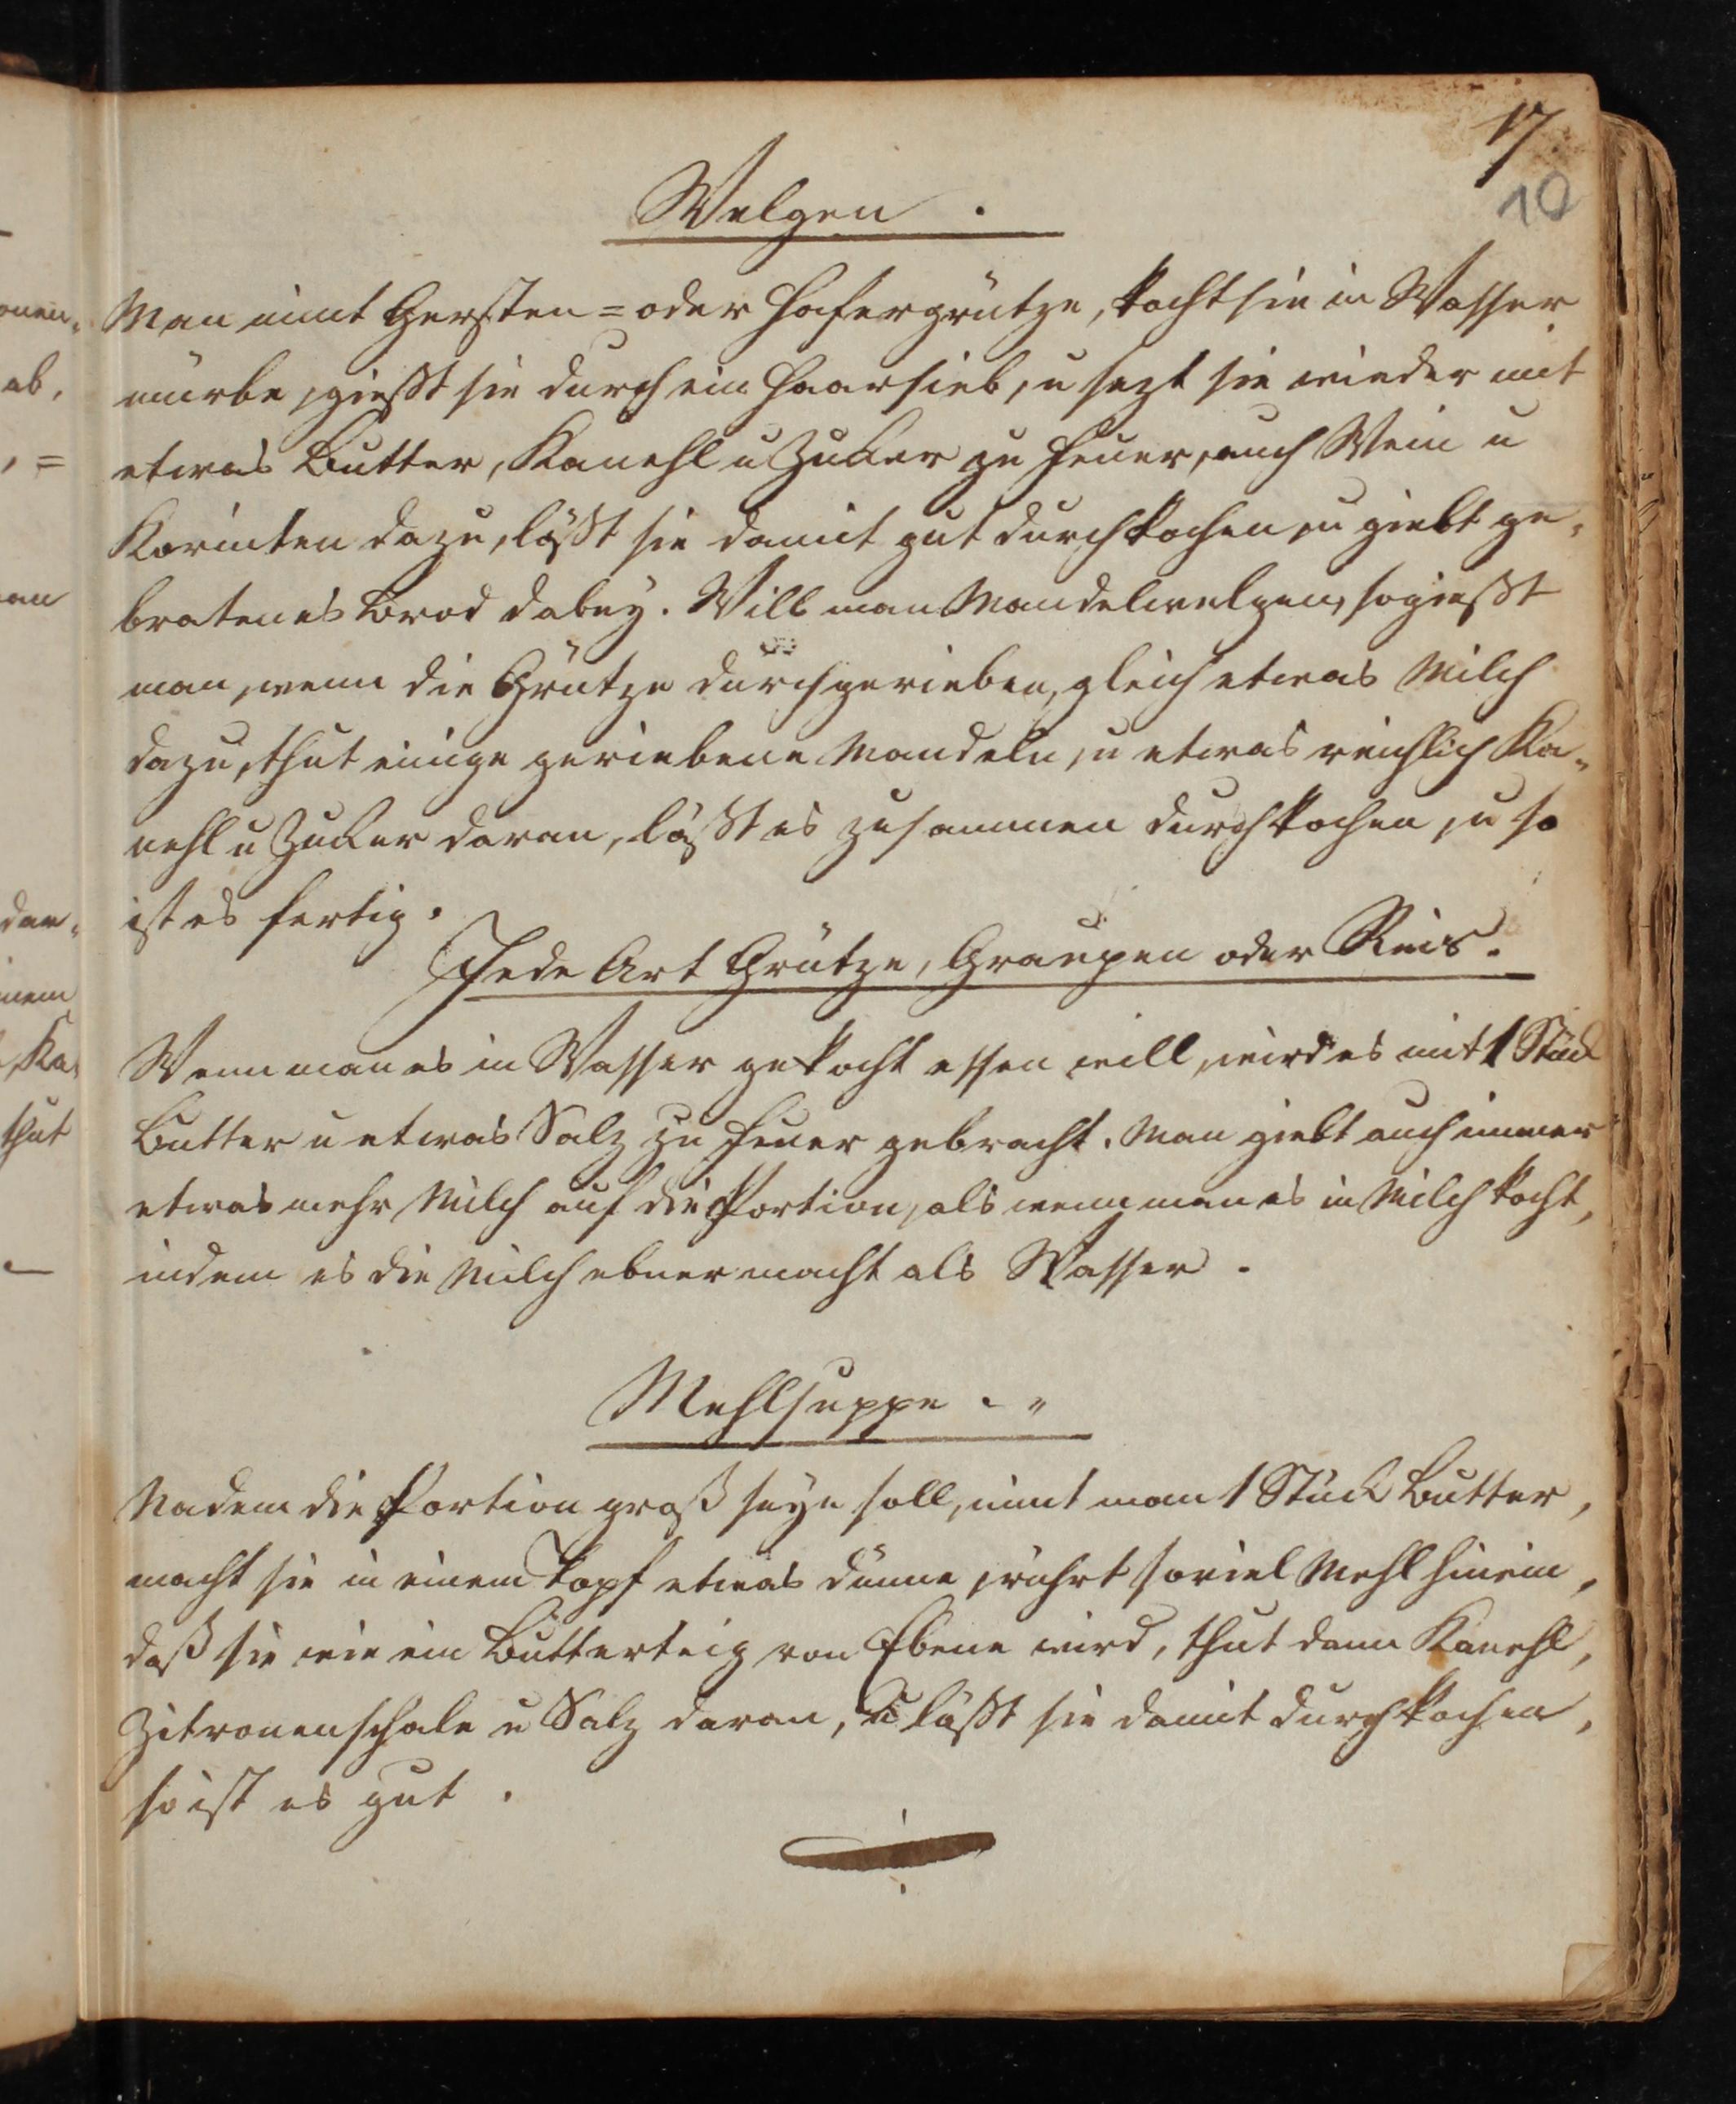 17.
10
Welgen.
Man nimt Gersten= oder Hafergrütze, kocht sie in Wasser
mürbe, gießt sie durch ein Haarsieb, u sezt sie wieder mit
etwas Butter, Kanehl u Zuker zu Feuer, auch Wein u
Korinten dazu, läßt sie damit gut durchkochen, u giebt ge-
bratenes Brod dabey. Will man Mandelwelgen, so gießt
man, wenn die Grütze durchgerieben, gleich etwas Milch
dazu, thut einige geriebene Mandeln, u etwas reichlich Ka-
nehl u Zuker daran, läßt es zusammen durchkochen, u so
ist es fertig.
Jede Art Grütze, Graupen oder Reis.
Wenn man es in Wasser gekocht essen will, wird es mit 1 Stück
Butter u etwas Salz zu Feuer gebracht. Man giebt auch immer
etwas mehr Milch auf die Portion, als wenn man es in Milch kocht,
indem es die Milch ebner macht als Wasser.
Mehlsuppe.
Nadem die Portion groß seyn soll, nimt man 1 Stück Butter,
macht sie in einem Topf etwas dünne, rührt soviel Mehl hinein,
daß sie wie ein Butterteig von Ebene wird, thut dann Kanehl,
Zitronenschale u Salz daran, u läßt sie damit durchkochen,
so ist es gut.
ab,
dar-
Ka-
thut